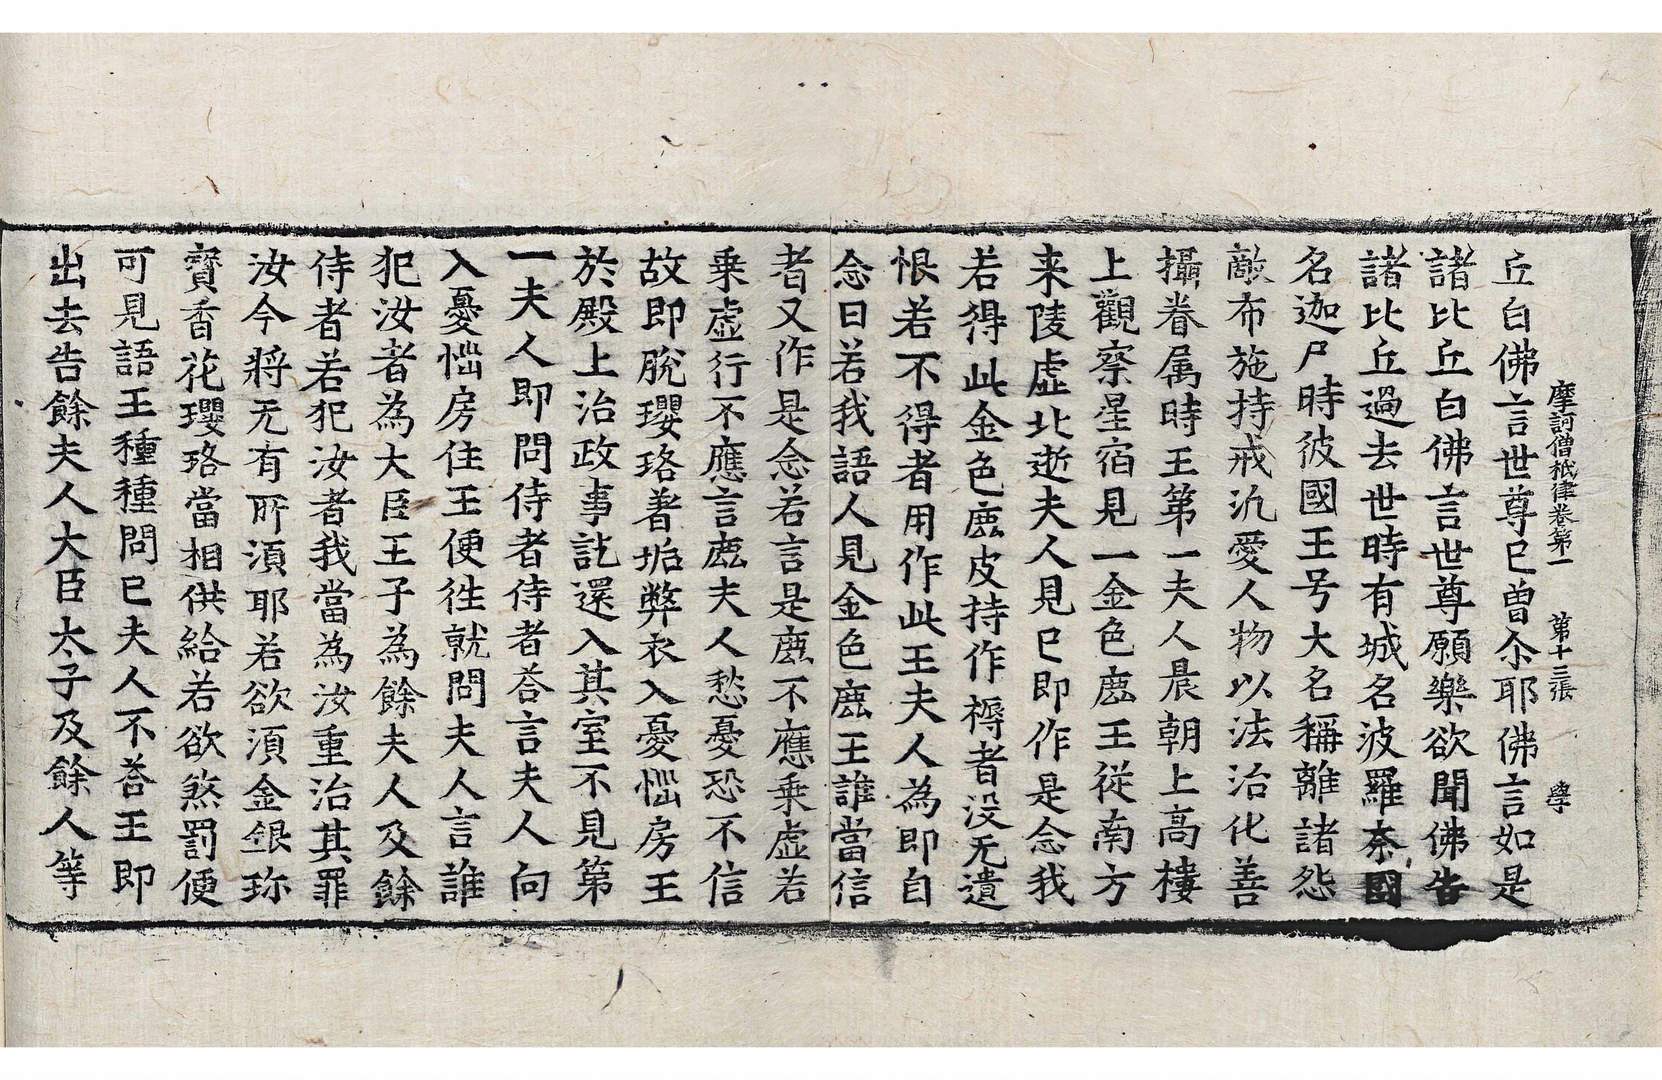 摩訶僧祇律卷第一 第十三張 學
丘白佛言世尊已曾尒耶佛言如是
諸比丘白佛言世尊願樂欲聞佛告
諸比丘過去世時有城名波羅奈國
名迦尸時彼國王号大名稱離諸怨
敵布施持戒汎愛人物以法治化善
攝眷属時王第一夫人晨朝上高樓
上觀察星宿見一金色鹿王從南方
来陵虛北逝夫人見已即作是念我
若得此金色鹿皮持作褥者没无遺
恨若不得者用作此王夫人為即自
念曰若我語人見金色鹿王誰當信
者又作是念若言是鹿不應乗虛若
乗虛行不應言鹿夫人愁憂恐不信
故即脫瓔珞著垢弊衣入憂惱房王
於殿上治政事訖還入其室不見第
一夫人即問侍者侍者荅言夫人向
入憂惱房住王便徃就問夫人言誰
犯汝者為大臣王子為餘夫人及餘
侍者若犯汝者我當為汝重治其罪
汝今將无有所湏耶若欲湏金銀珎
寶香花瓔珞當相供給若欲煞罰便
可見語王種種問已夫人不荅王即
出去告餘夫人大臣太子及餘人等